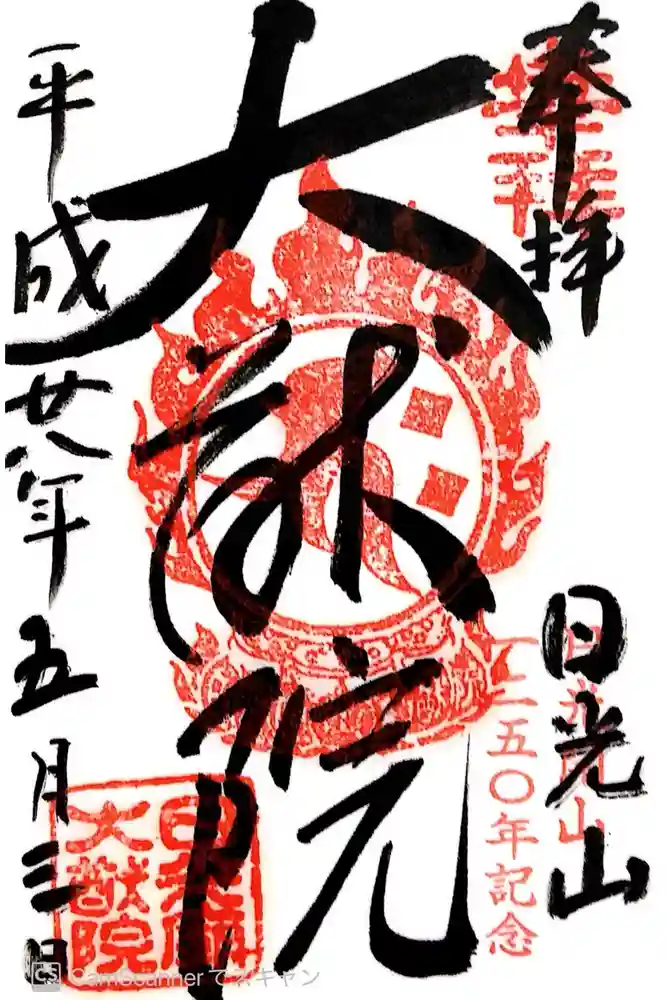 奉拝
日光山
日光山
一二五〇年記念
大猷院
平成廿八年五月三日
日光山
大猷院
CS CamScannerでスキャン